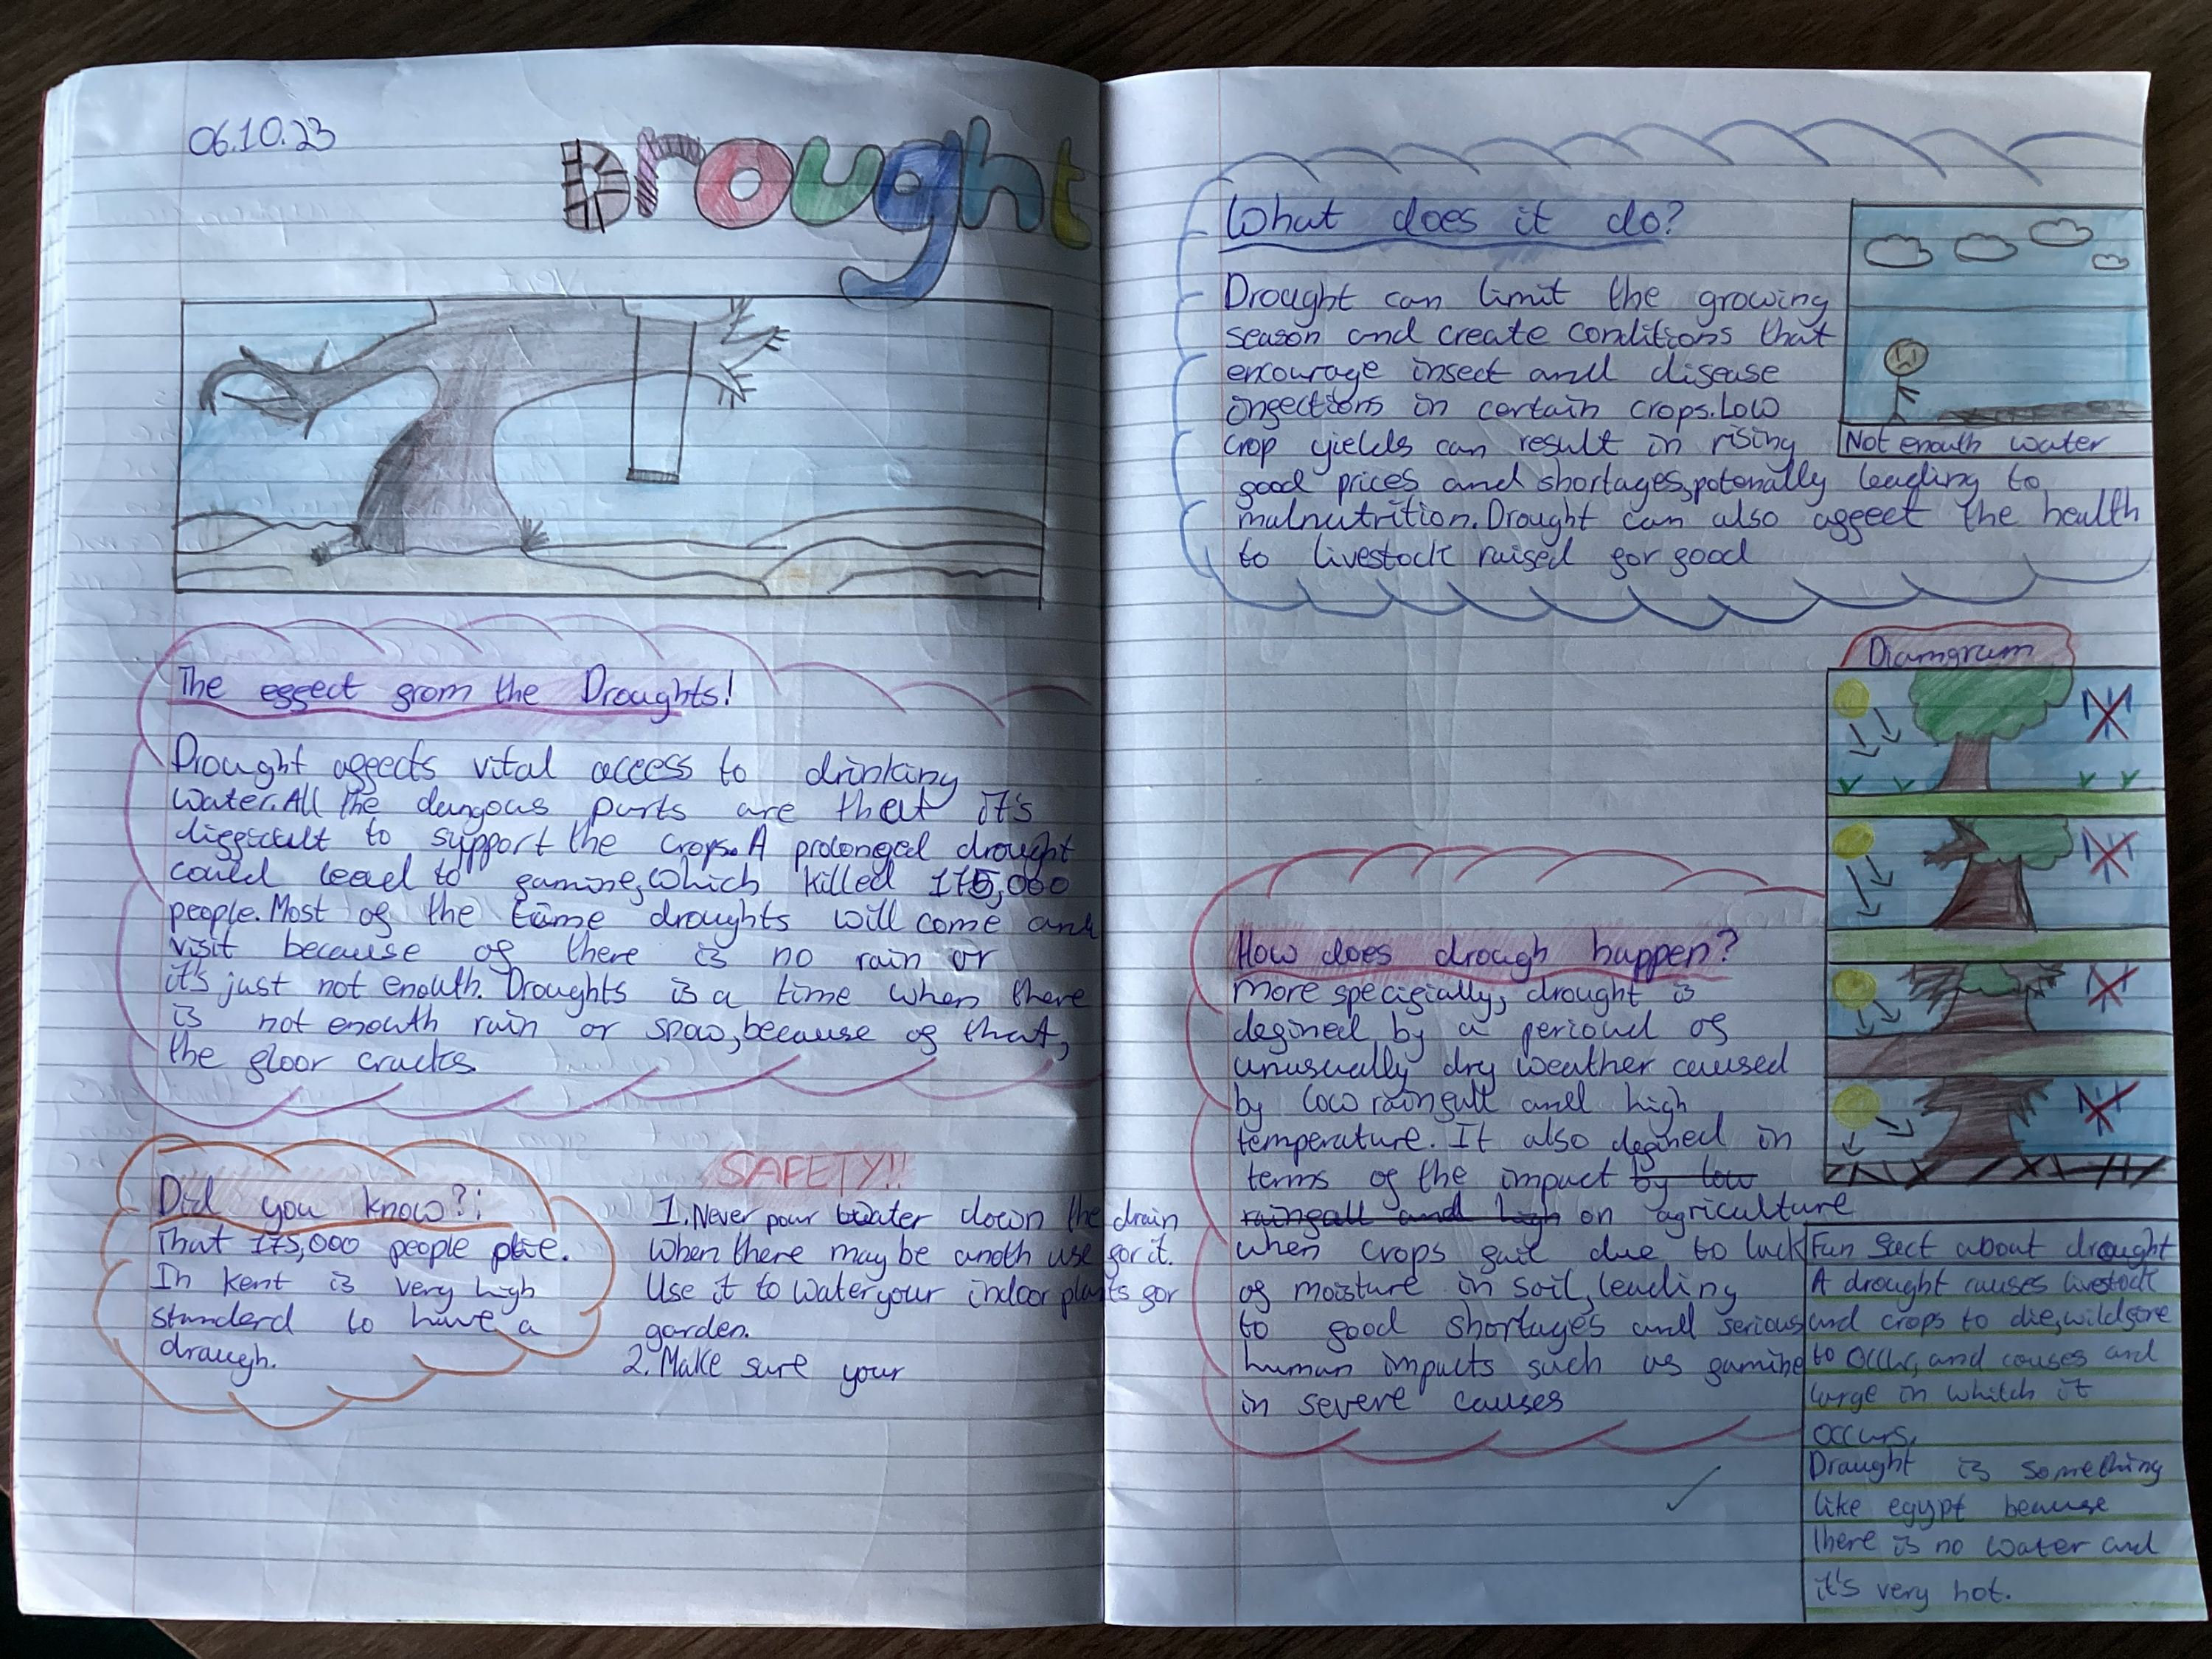 06.10.23
Drought
The effect from the Droughts!
Drought affects vital access to drinking
water. All the dangous parts are that it's
difficult to support the crops. A prolonged drought
could lead to famine, which killed 175,000
people. Most of the time droughts will come and
visit because of there is no rain or
it's just not enouth. Droughts is a time when there
is not enouth rain or snow, because of that,
the floor cracks.
Did you know?:
That 175,000 people
In kent is very high
standerd to have a
draugh.
SAFETY!!
1. Never pour water down the drain
when there may be anoth use for it.
Use it to water your indoor plants for
garden.
2. Make sure your
What does it do?
Drought can limit the growing
season and create conditions that
encourage insect and disease
infections in certain crops. Low
crop yields can result in rising
food prices and shortages, potenally leading to
malnutrition. Drought can also affect the health
to livestock raised for food
Not enouth water
Diamgram
How does drough happen?
More specifially, drought is
defined by a perioud of
unusually dry weather caused
by low rainfall and high
temperature. It also defined in
terms of the impact by low
rainfall and high on agriculture
when crops fail due to lack
of moisture in soil, leading
to food shortages and serious
human impacts such as famine
in severe causes
Fun fact about drought
A drought causes livestock
and crops to die, wildfire
to occur, and causes and
large in whitch it
occurs,
Draught is something
like egypt beause
there is no water and
it's very hot.